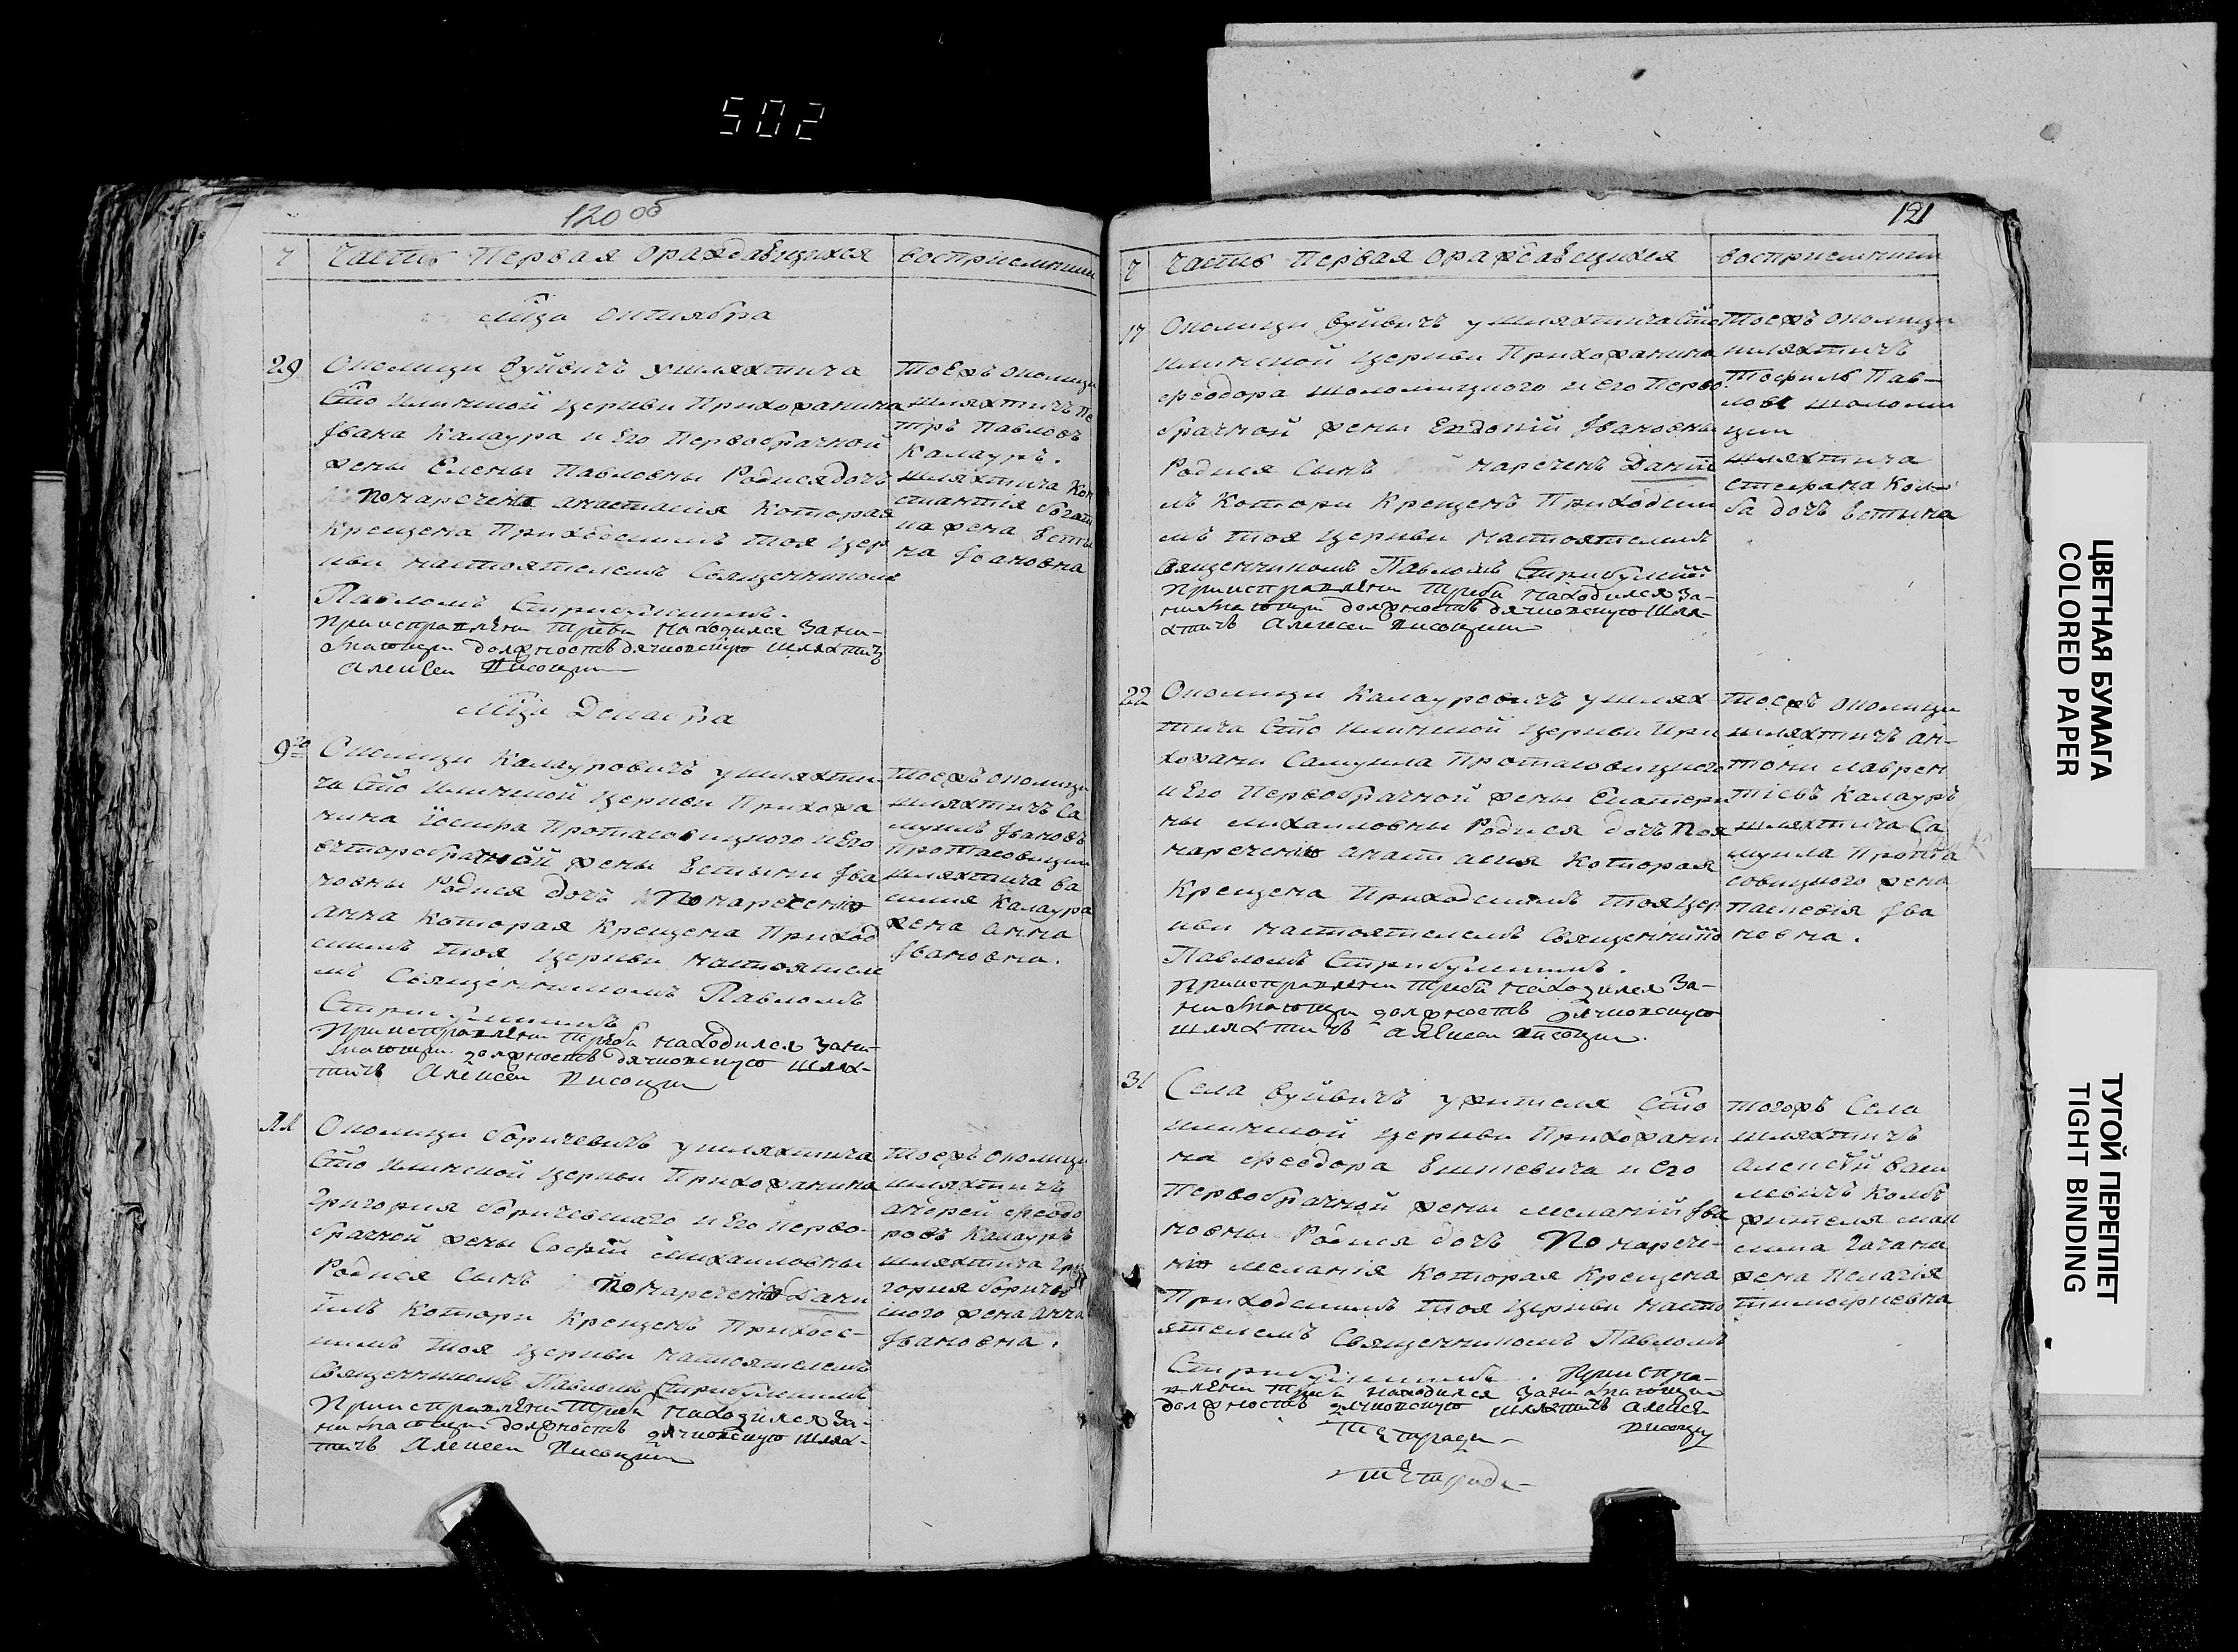 502
120 об
Ч Часть Первая ораждавшихся восприемники
Мца октября
29
Околицы Вуйвичъ ушляхтича
Сто Илинской Церкви Прихожанина
Ивана Калаура и Его Первобрачной
жены Елены Павловны Родися дочь
По наречена Анастасія Которая
Крещена Приходскимъ тоя Цер
кви настоятелемъ Священникомъ
Павломъ
При исправлении требы находился зани-
мающи должность дячковскую шляхтичъ
Алексеи
тоежъ околицы
шляхтичъ Пе
тръ Павловъ
Калауръ.
шляхтича Кон
стантія
жена Есты
на Ивановна
Мца Декабра
9го
Околицы Калауровичъ ушляхти
ча Сто Илинской Церкви Прихожа
нина Іосифа Протасовицкого и Его
второбрачной жены Естыни Ива
новны Родися дочь По наречению
Анна Которая Крещена Приход
скимъ тоя Церкви настоятеле
мъ Священникомъ Павломъ
При исправлении требы находился зани-
мающи должность дячковскую шлях-
тичъ Алексеи
тоежъ околицы
шляхтичъ Са
муилъ Ивановъ
Протасовицки
шляхтича Ва
силия Калаура
жена Анна
Ивановна.
11
Околицы Боричевичъ ушляхтича
Сто Илинской Церкви Прихожанина
Григория Боричевского и Его Перво-
брачной жены Софіи Михаиловны
Родися Сынъ по наречению Дани
илъ Котори Крещенъ Приходс-
кимъ тоя Церкви настоятелемъ
Священникомъ Павломъ
При исправлении требы находился за-
нимающи должность дячковскую шлях-
тичъ Алексеи
тоежъ околицы
шляхтичъ
Андрей Феодо
ровъ Калауръ
шляхтича Гри
гория Боричев
ского жена Анна
Ивановна.
121
Ч Часть Первая ораждавшихся восприемники
17
Околицы Вуйвичъ ушляхтича Сто
Илинской Церкви Прихожанина
Феодора Шоломицкого и Его Перво
брачной жены Евдокіи Ивановны
Родися Сынъ нареченъ Даніи
лъ Котори Крещенъ Приходски
мъ тоя Церкви настоятелемъ
Священникомъ Павломъ
При исправлении требы находился за-
нимающи должность дячковскую шля-
хтичъ Алексеи
тоежъ околицы
шляхтичъ
Тофиль Пав-
ловъ Шоломи
цки
шляхтича
Стефана Кол-
ба дочь Естына
22
Околицы Калауровичъ ушлях
тича Сто Илинской Церкви При
хожани Самуила Протасовицкого
и Его Первобрачной жены Екатери
ны Михаиловны Родися дочь По
наречению Анастасия Которая
Крещена Приходскимъ тоя Цер
кви настоятелемъ Священнико
Павломъ
При исправлении требы находился за-
нимающи должность дячковскую
шляхтичъ Алексеи
тоежъ околицы
шляхтичъ Ан-
тони Лаврен
тіевъ Калауръ
шляхтича Са
муила Протa
совицкого жена
Паскевія Ива
новна.
31
Села Вуйвичъ ужителя Сто
Илинской Церкви Прихожани
на Феодора и Его
Первобрачной жены Меланіи Ива
новны Родися дочь По нарече-
нію Меланія Которая Крещена
Приходскимъ тоя Церкви насто
ятелемъ Священникомъ Павломъ
При испра-
влении требы находился занимающи
должность дячковскую шляхтичъ Алексеи
тогожъ Села
шляхтичъ
Алексій Васи
левичъ Колбъ
жителя Мак
сима
жена Пелагія
Тимофиевна
ЦВЕТНАЯ БУМАГА
COLORED PAPER
ТУГОЙ ПЕРЕПЛЕТ
TIGHT BINDING